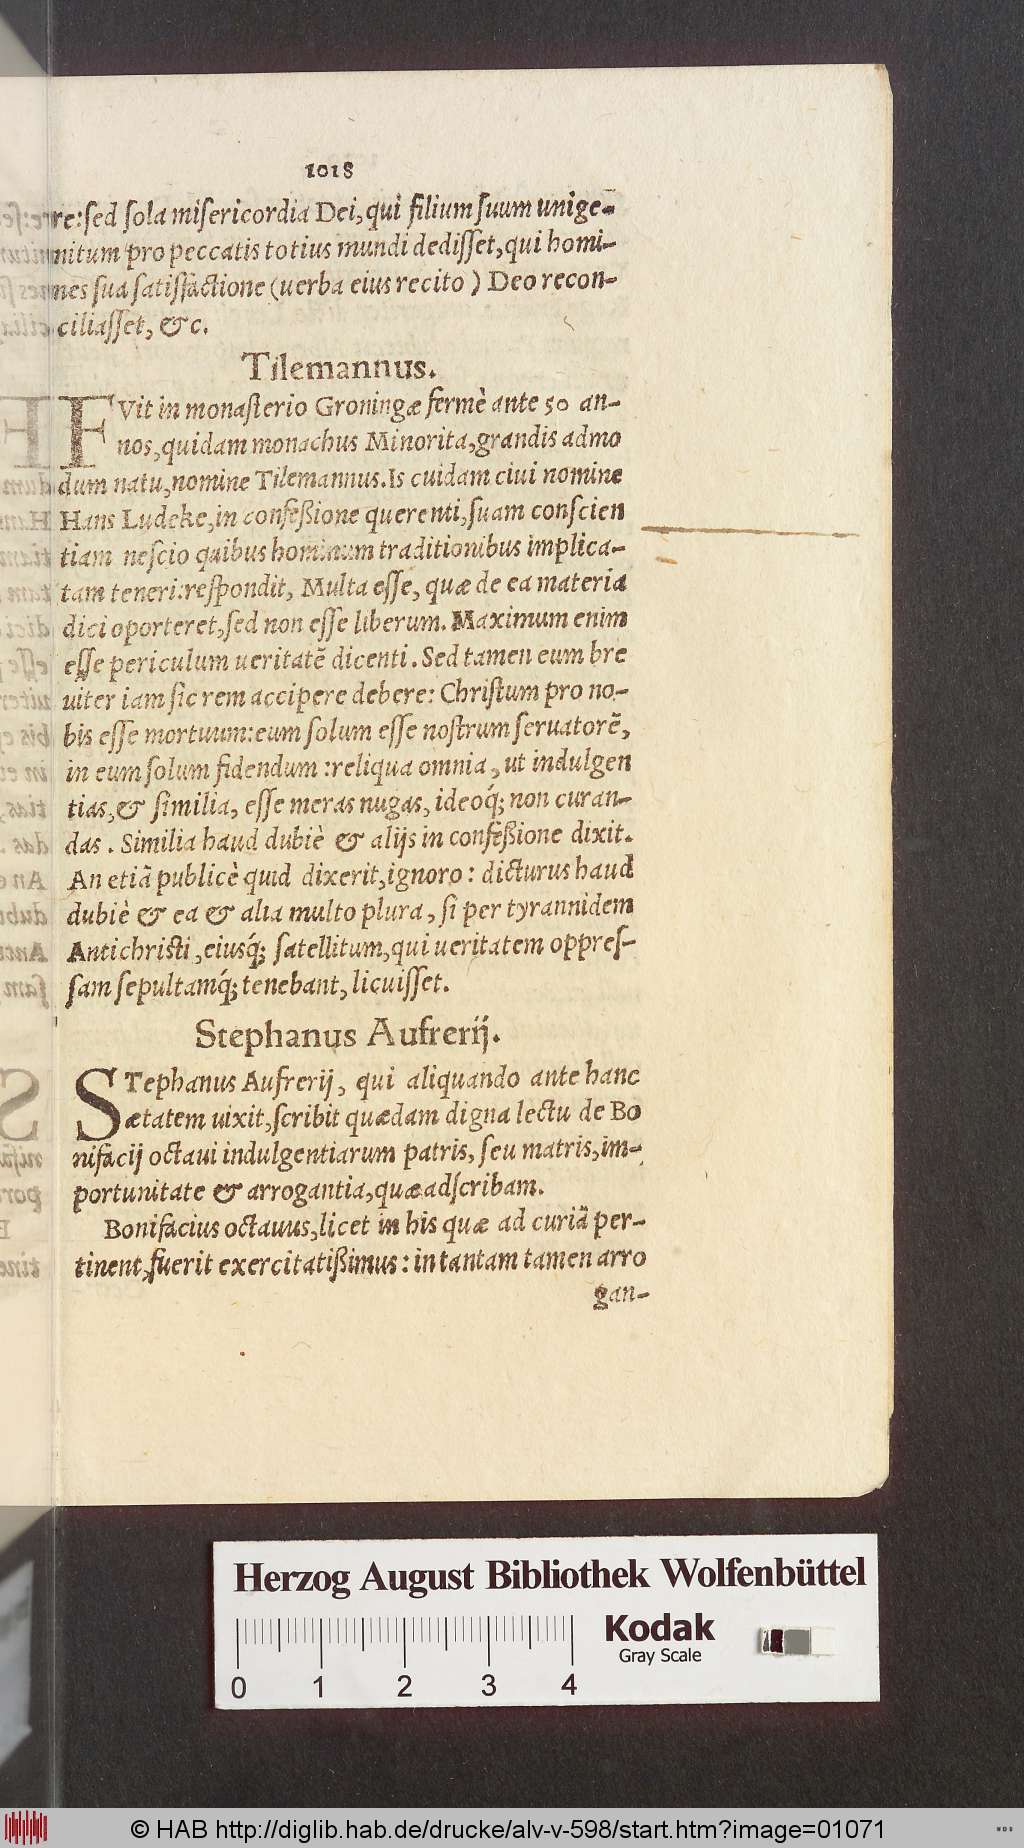 1018
re:ſed ſola miſericordia Dei, qui filium ſuum unige-
nitum pro peccatis totius mundi dediſſet, qui homi-
nes ſua ſatisfactione (uerba eius recito) Deo recon-
ciliaſſet, &c.
Tilemannus.
FVit in monaſterio Groningæ fermè ante 50 an-
nos, quidam monachus Minorita, grandis admo
dum natu, nomine Tilemannus. Is cuidam ciui nomine
Hans Ludeke, in confeßione querenti, ſuam conſcien
tiam neſcio quibus hominum traditionibus implica-
tam teneri: reſpondit, Multa eſſe, quæ de ea materia
dici oporteret, ſed non eſſe liberum. Maximum enim
eſſe periculum ueritatē dicenti. Sed tamen eum bre
uiter iam ſic rem accipere debere: Chriſtum pro no-
bis eſſe mortuum: eum ſolum eſſe noſtrum ſeruatorē,
in eum ſolum fidendum: reliqua omnia, ut indulgen
tias, & ſimilia, eſſe meras nugas, ideoq́; non curan-
das. Similia haud dubiè & alijs in confeßione dixit.
An etiā publicè quid dixerit, ignoro: dicturus haud
dubiè & ea & alia multo plura, ſi per tyrannidem
Antichriſti, eiusq́; ſatellitum, qui ueritatem oppreſ-
ſam ſepultamq́; tenebant, licuiſſet.
Stephanus Aufrerij.
STephanus Aufrerij, qui aliquando ante hanc
ætatem uixit, ſcribit quædam digna lectu de Bo
nifacij octaui indulgentiarum patris, ſeu matris, im-
portunitate & arrogantia, quæ adſcribam.
Bonifacius octauus, licet in his quæ ad curiā per-
tinent, fuerit exercitatißimus: in tantam tamen arro
gan-
Herzog August Bibliothek Wolfenbüttel
Kodak
Gray Scale
0 1 2 3 4
© HAB http://diglib.hab.de/drucke/alv-v-598/start.htm?image=01071